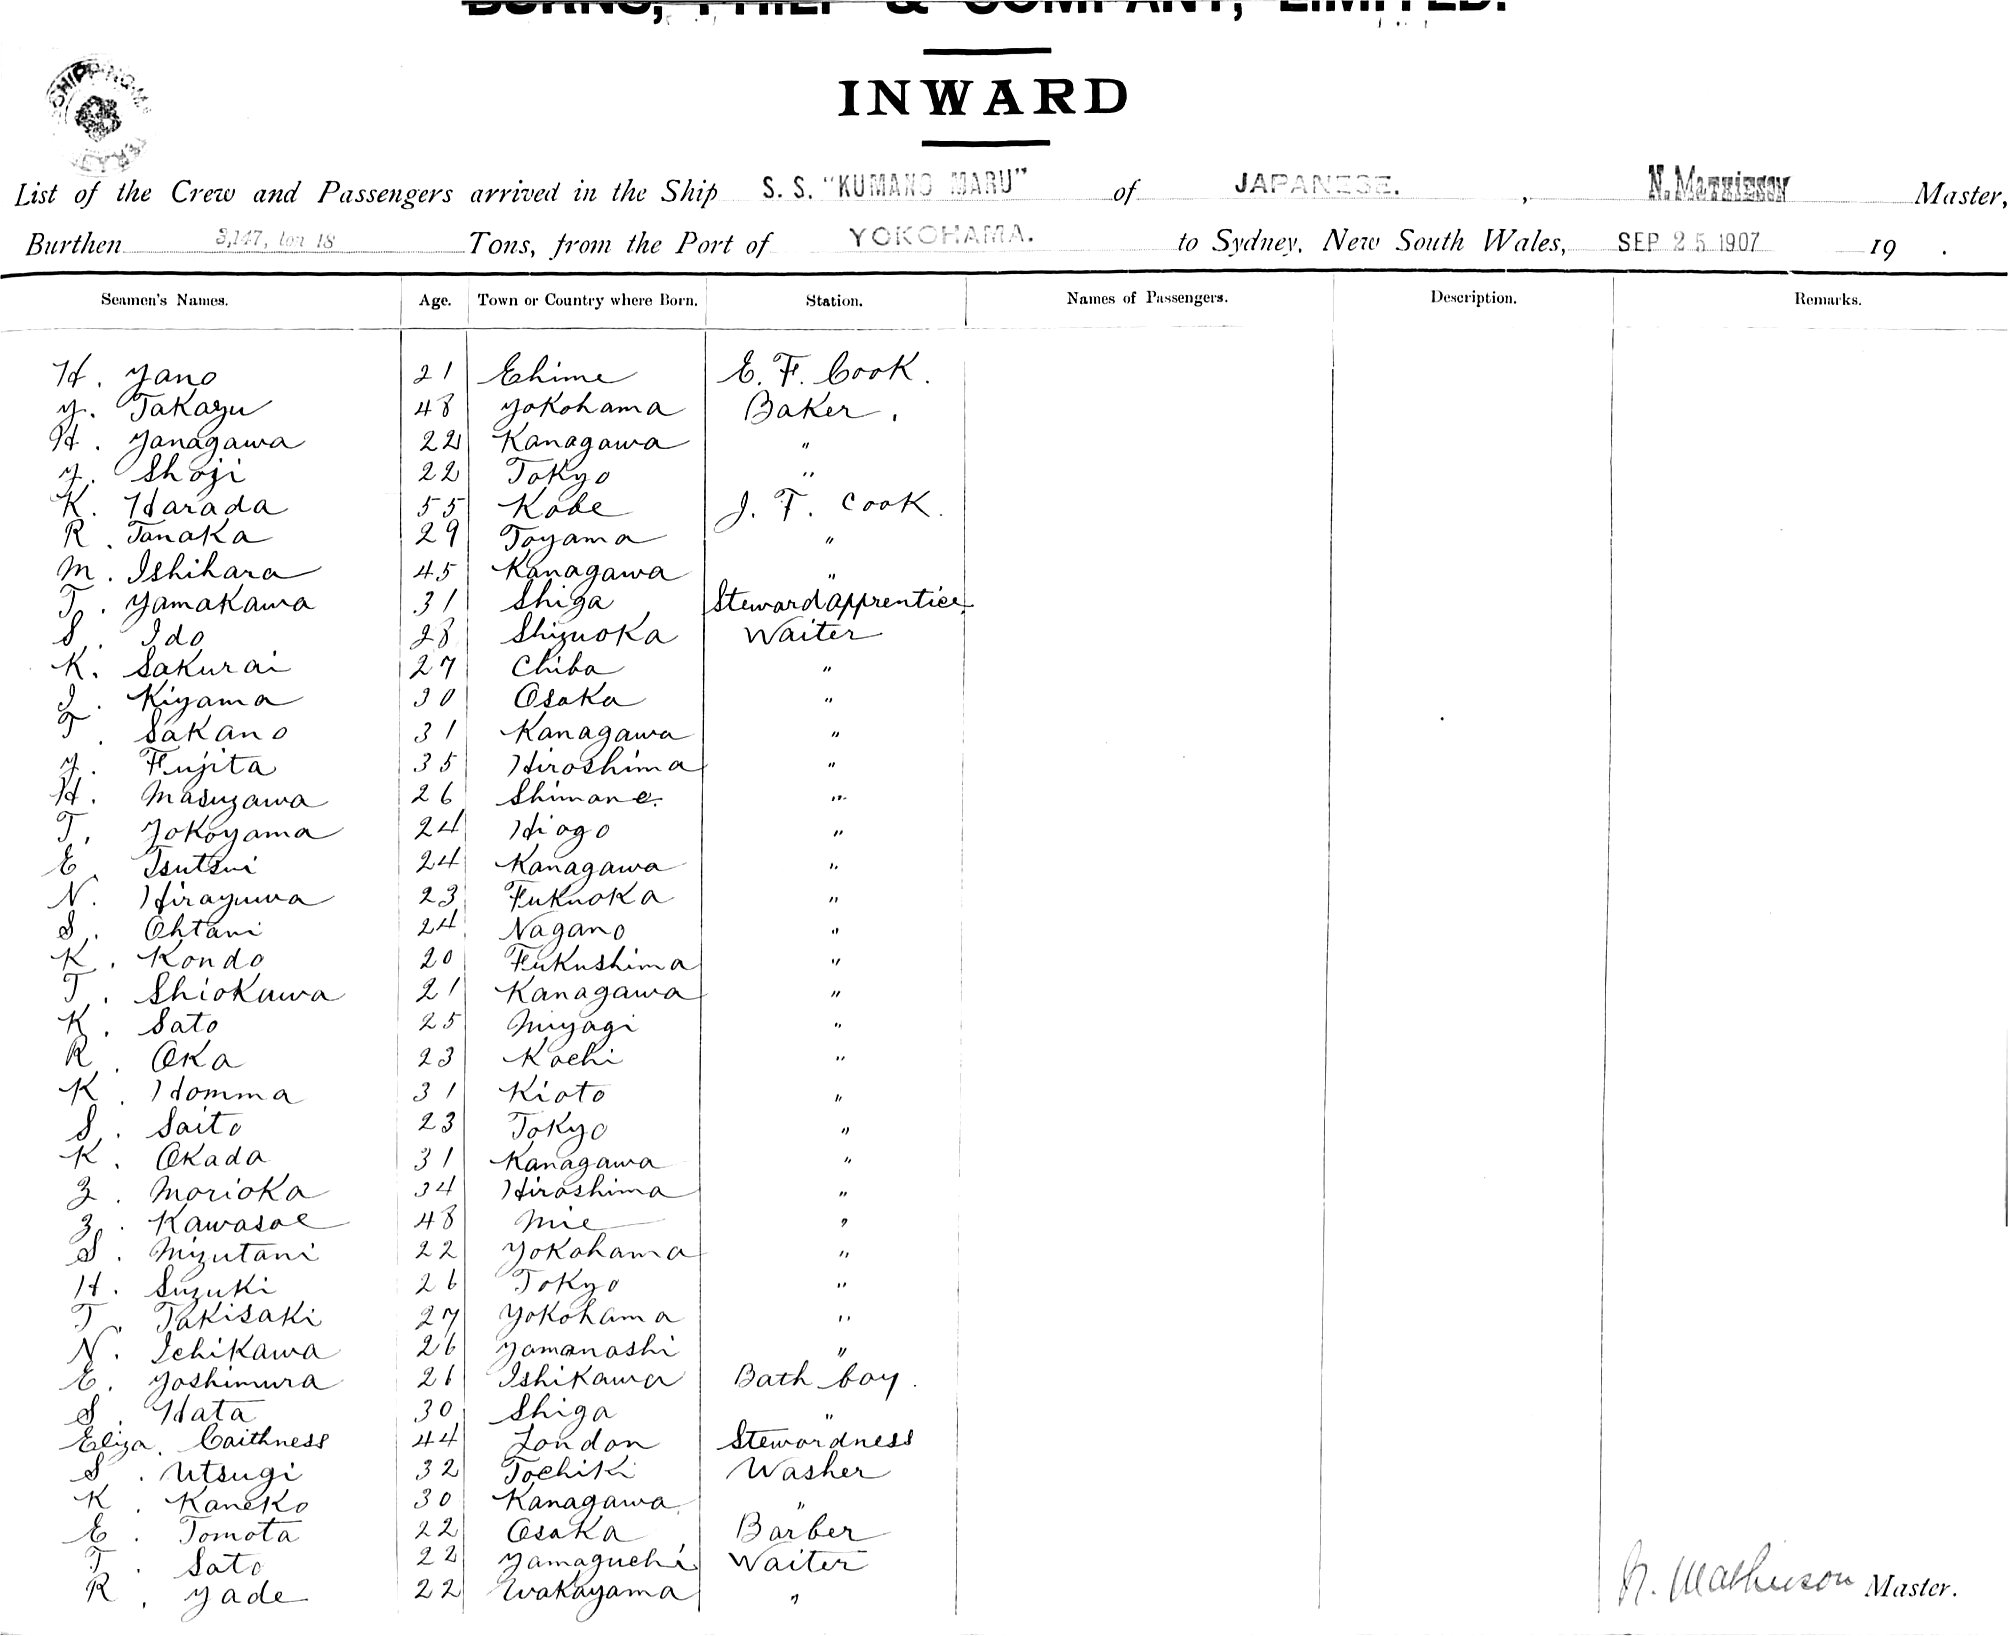 BURNS, PHILP & COMPANY, LIMITED.
INWARD
List of the Crew and Passengers arrived in the Ship S. S. "KUMANO MARU" of JAPANESE. , N. Mathieson Master,
Burthen 3,147, ton 18 Tons, from the Port of YOKOHAMA. to Sydney, New South Wales, SEP 25 1907 19 .
Seamen's Names. Age. Town or Country where Born. Station. Names of Passengers. Description. Remarks.
H. Yano 21 Ehime E. F. Cook.
Y. Takazu 48 Yokohama Baker.
H. Yanagawa 22 Kanagawa "
Y. Shoji 22 Tokyo "
K. Harada 55 Kobe J. F. Cook.
R. Tanaka 29 Toyama "
M. Ishihara 45 Kanagawa "
T. Yamakawa 31 Shiga Steward apprentice
S. Ido 28 Shizuoka Waiter
K. Sakurai 27 Chiba "
J. Kiyama 30 Osaka "
T. Sakano 31 Kanagawa "
Y. Fujita 35 Hiroshima "
H. Masuzawa 26 Shimane. "
T. Yokoyama 24 Hiogo "
E. Tsutsui 24 Kanagawa "
N. Hirayuwa 23 Fukuoka "
S. Ohtani 24 Nagano "
K. Kondo 20 Fukushima "
T. Shiokawa 21 Kanagawa "
K. Sato 25 Miyagi "
R. Oka 23 Kochi "
K. Homma 31 Kioto "
S. Saito 23 Tokyo "
K. Okada 31 Kanagawa "
Z. Morioka 34 Hiroshima "
Z. Kawasoe 48 Mie "
S. Mizutani 22 Yokohama "
H. Suzuki 26 Tokyo "
T. Takisaki 27 Yokohama "
N. Ichikawa 26 Yamanashi "
E. Yoshimura 26 Ishikawa Bath boy.
S. Hata 30 Shiga "
Eliza. Caithness 44 London Stewordness
S. Utsugi 32 Tochiki Washer
K. Kaneko 30 Kanagawa "
E. Tomota 22 Osaka Barber
T. Sato 22 Yamaguchi Waiter
R. Yade 22 Wakayama "
N. Mathieson Master.